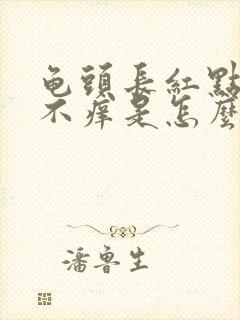 龟頭長紅點
不痒是怎麼
潘魯生